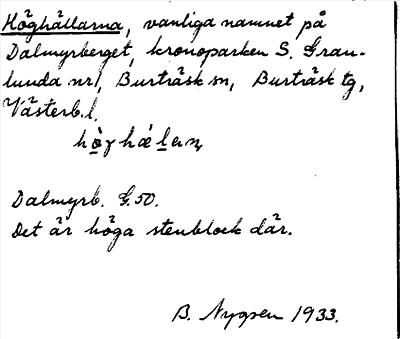 Höghällarna, vanliga namnet på
Dalmyrberget, kronoparken S. Gran-
lunda nr 1, Burträsk sn, Burträsk tg,
Västerb. l.
Dalmyrb. G. 50.
Det är höga stenblock där.
B. Nygren 1933.